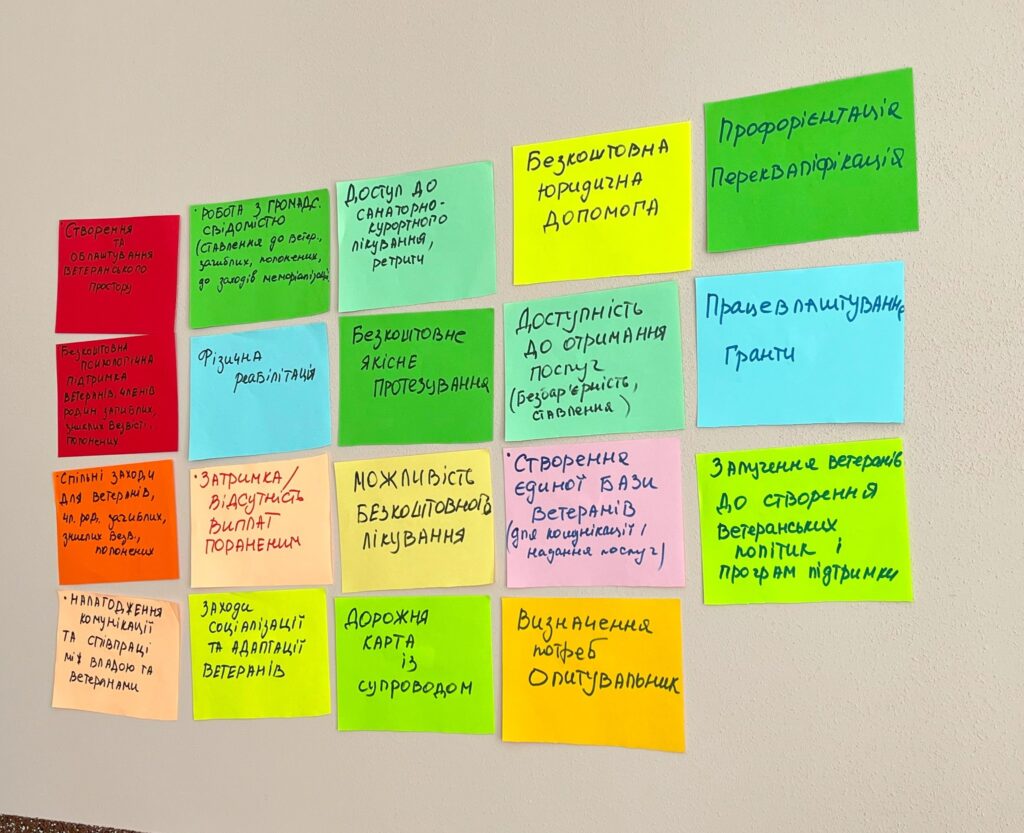 • Створення
та
облаштування
ветеранського
простору
• Робота з громадс.
свідомістю
(ставлення до ветер.,
загиблих, полонених,
до заходів меморіалізації
Доступ до
санаторно-
курортного
лікування,
ретрити
Безкоштовна
юридична
допомога
Профорієнтація
Перекваліфікація
Безкоштовна
психологічна
підтримка
ветеранів, членів
родин загиблих,
зниклих безвісті,
полонених
Фізична
реабілітація
Безкоштовне
якісне
протезування
Доступність
до отримання
послуг
(Безбар'єрність,
ставлення)
Працевлаштування
Гранти
• Спільні заходи
для ветеранів,
чл. род. загиблих,
зниклих безв.,
полонених
• Затримка/
відсутність
виплат
пораненим
Можливість
безкоштовного
лікування
• Створення
єдиної бази
ветеранів
(для комунікації і
надання послуг)
Залучення ветеранів
до створення
ветеранських
політик і
програм підтримки
• Налагодження
комунікації
та співпраці
між владою та
ветеранами
Заходи
соціалізації
та адаптації
ветеранів
Дорожня
карта
із
супроводом
Визначення
потреб
Опитувальник